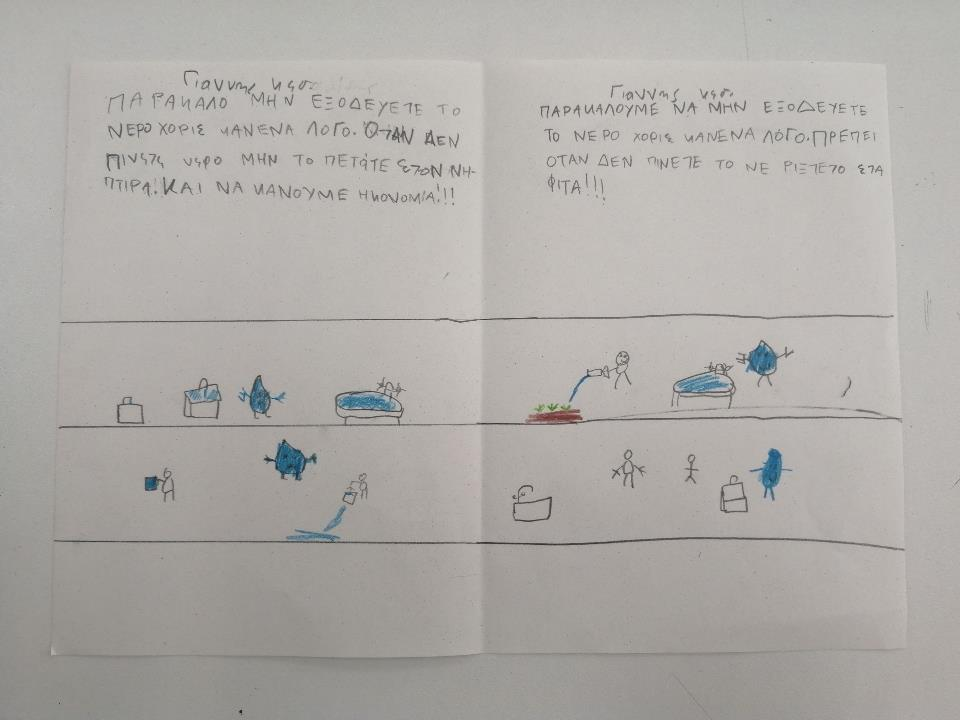 Γιαννης
ΠΑΡΑΚΑΛΟ ΜΗΝ ΕΞΟΔΕΥΕΤΕ ΤΟ
ΝΕΡΟ ΧΟΡΙΣ ΚΑΝΕΝΑ ΛΟΓΟ. ΟΤΑΝ ΔΕΝ
ΠΙΝΕΤΕ ΝΕΡΟ ΜΗΝ ΤΟ ΠΕΤΑΤΕ ΣΤΟΝ ΝΗ-
ΠΤΙΡΑ! ΚΑΙ ΝΑ ΚΑΝΟΥΜΕ ΗΚΟΝΟΜΙΑ!!!
Γιαννης
ΠΑΡΑΚΑΛΟΥΜΕ ΝΑ ΜΗΝ ΕΞΟΔΕΥΕΤΕ
ΤΟ ΝΕΡΟ ΧΟΡΙΣ ΚΑΝΕΝΑ ΛΟΓΟ. ΠΡΕΠΕΙ
ΟΤΑΝ ΔΕΝ ΠΙΝΕΤΕ ΤΟ ΝΕ ΡΙΞΤΕΤΟ ΣΤΑ
ΦΙΤΑ!!!